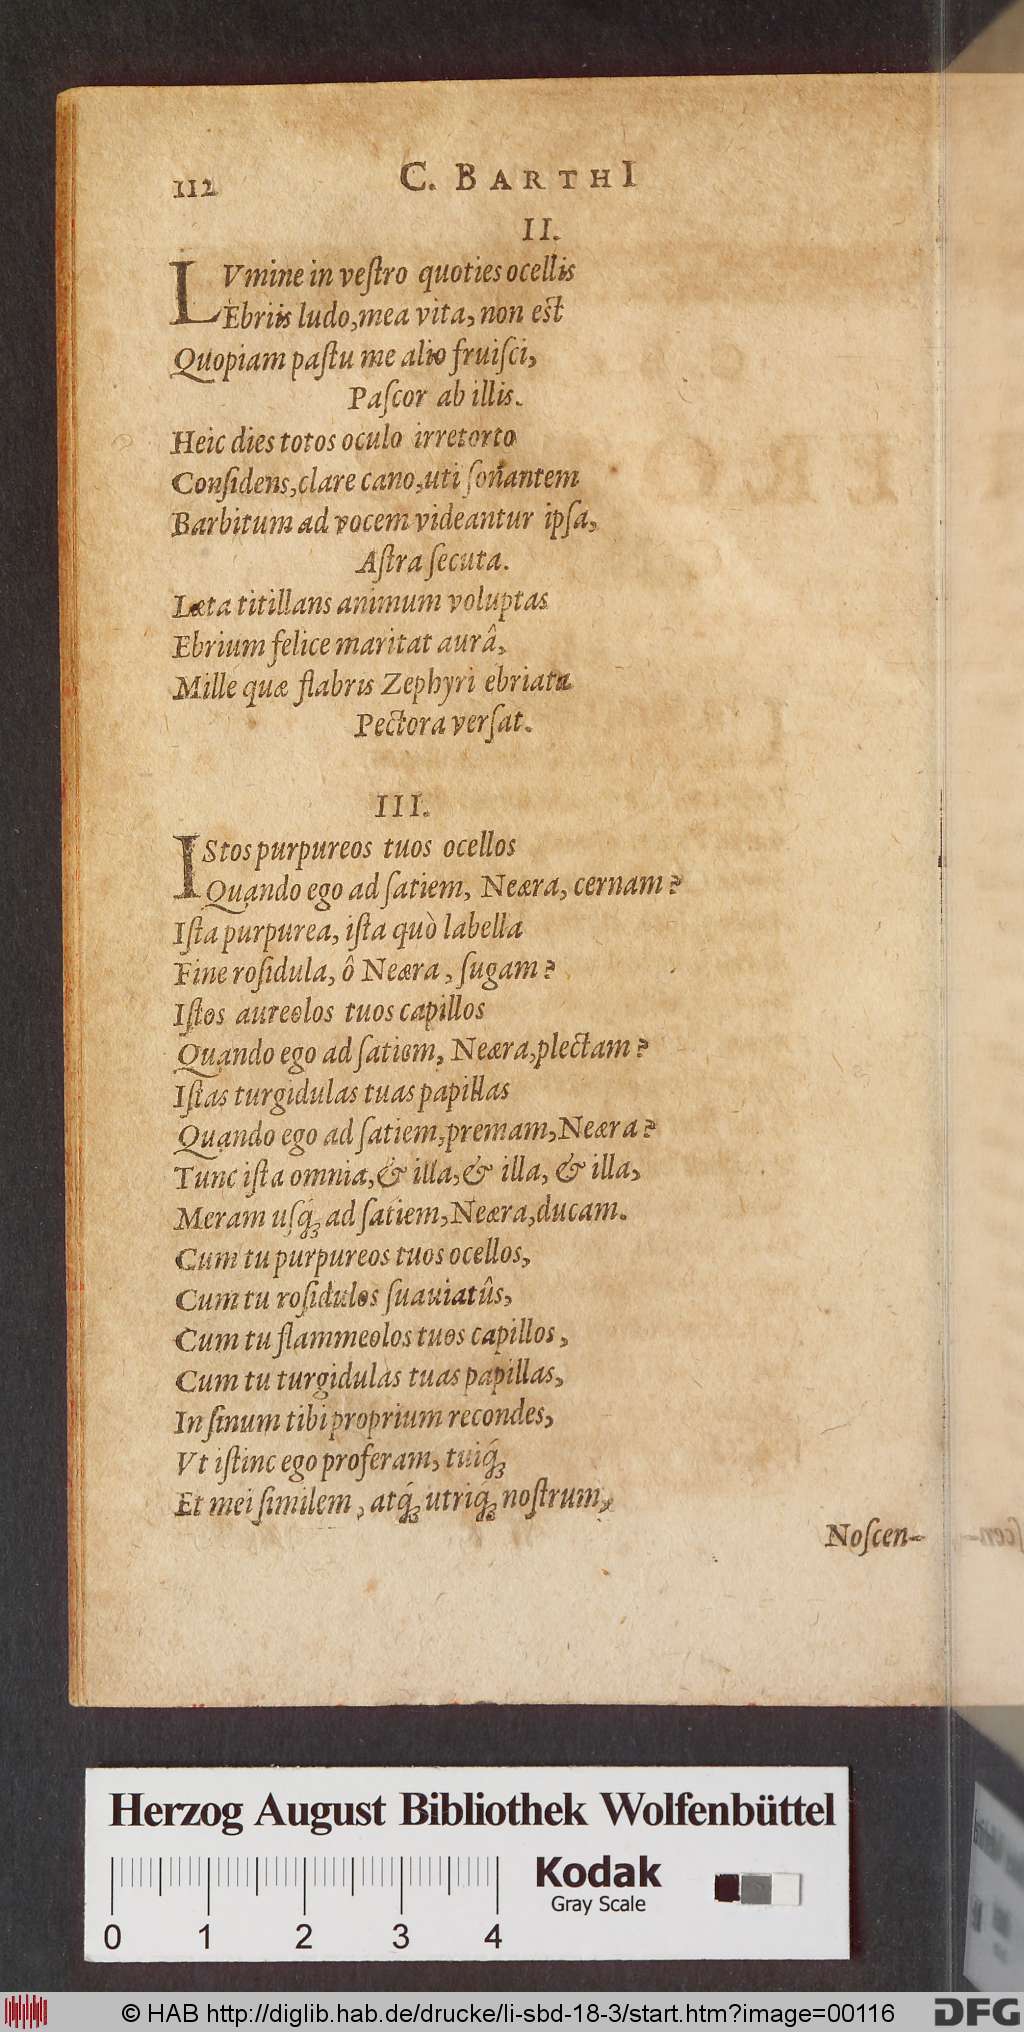 112 C. BARTHI
II.
LVmine in veſtro quoties ocellis
Ebriis ludo, mea vita, non est
Quopiam paſtu me alio fruiſci,
Paſcor ab illis.
Heic dies totos oculo irretorto
Conſidens, clare cano, uti ſonantem
Barbitum ad vocem videantur ipſa,
Aſtra ſecuta.
Læta titillans animum voluptas
Ebrium felice maritat aurâ,
Mille quæ flabris Zephyri ebriata
Pectora verſat.
III.
IStos purpureos tuos ocellos
Quando ego ad ſatiem, Neæra, cernam?
Iſta purpurea, iſta quò labella
Fine roſidula, ô Neæra, ſugam?
Iſtos aureolos tuos capillos
Quando ego ad ſatiem, Neæra, plectam?
Iſtas turgidulas tuas papillas
Quando ego ad ſatiem, premam, Neæra?
Tunc iſta omnia, & illa, & illa, & illa,
Meram uſq́; ad ſatiem, Neæra, ducam.
Cum tu purpureos tuos ocellos,
Cum tu roſidulos ſuauiatûs,
Cum tu flammeolos tuos capillos,
Cum tu turgidulas tuas papillas,
In ſinum tibi proprium recondes,
Vt iſtinc ego proferam, tuiq́;
Et mei ſimilem, atq́; utriq; noſtrum,
Noſcen-
Herzog August Bibliothek Wolfenbüttel
Kodak
Gray Scale
0 1 2 3 4
© HAB http://diglib.hab.de/drucke/li-sbd-18-3/start.htm?image=00116
DFG